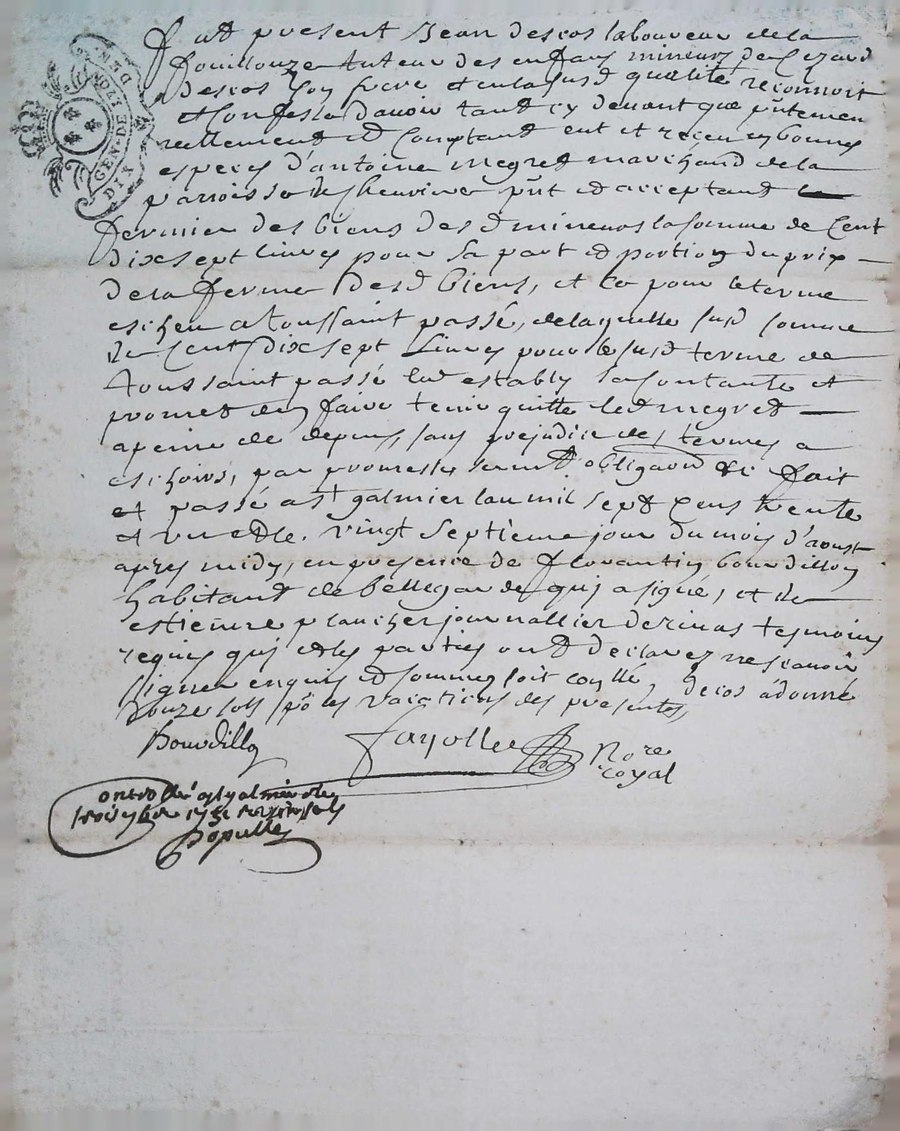 GEN·DE LIZON
DIX DEN
fut present Jean descos laboureur de la
fouillouze tuteur des enfans mineurs de Cezard
descos son frere et en lad susd qualité reconnoit
et confesse d'avoir tant cy devant que pntemen
reellement et Comptant eut et receu en bonnes
especes d'antoine megret marchand de la
parroisse de chevrieres pnt et acceptant
fermier des biens desd mineurs la somme de Cent
dix sept livres pour sa part et portion du prix
de la ferme desd biens, et ce pour le terme
escheu a toussaint passé, de laquelle susd somme
de Cent dix sept Livres pour le susd terme de
toussaint passé led estably sa contante et
promet en faire tenir quitte led megret
a peine de depens, sans prejudice des termes a
eschoirs, par promesse serment obligaon &c fait
et passé a st galmier l'an mil sept cens trente
et un et le vingt septieme jour du mois d'aoust
apres midy, en presence de florantin bourdillon
habitant de bellegarde qui a signé, et de
estienne plancher journallier de rivas tesmoins
requis qui et les parties ont declarez ne scavoir
signer enquis et sommes soit conllé, descos a donné
douze sols po les vacations des presentes,
Bourdillon
fayolle Nore
royal
Controllé a st galmier le
Populle